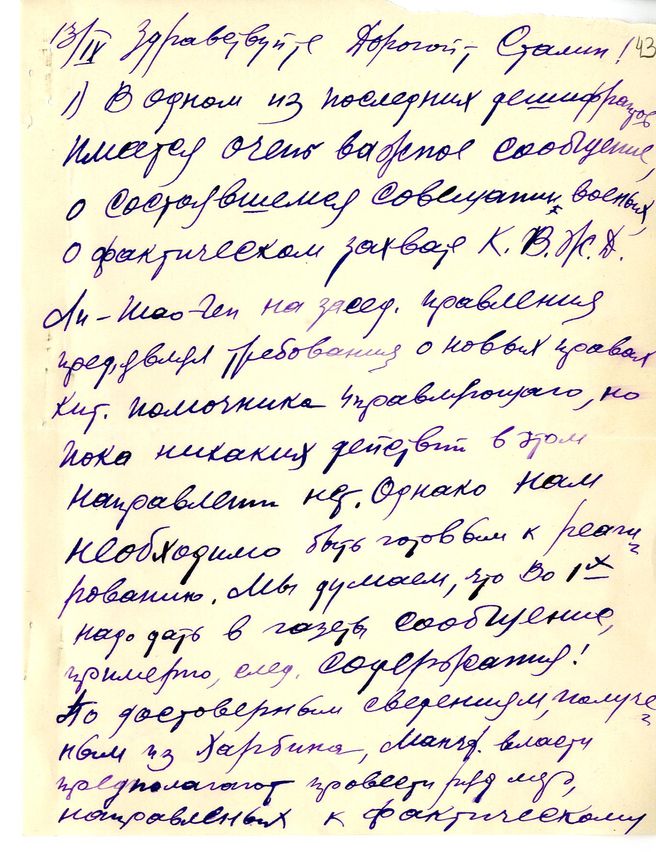 13/IV Здравствуйте Дорогой Сталин! 43
1) В одном из последних дешифрантов
имается очень важное сообщение,
о состоявшемся совещании военных,
о фактическом захвате К.В.Ж.Д.
Ли-Шао-Ген на засед. правления
пред'явил требования о новых правах
кит. помочника управляющаго, но
пока никаких действий в этом
направлении нет. Однако нам
необходимо быть готовым к реаги-
рованию. Мы думаем, что во 1х
надо дать в газеты сообщение,
примерно, след. содержания!
По достоверным сведениям, получе-
ным из Харбина, Манчж. власти
предполагают провести ряд мер,
направленых к фактическому